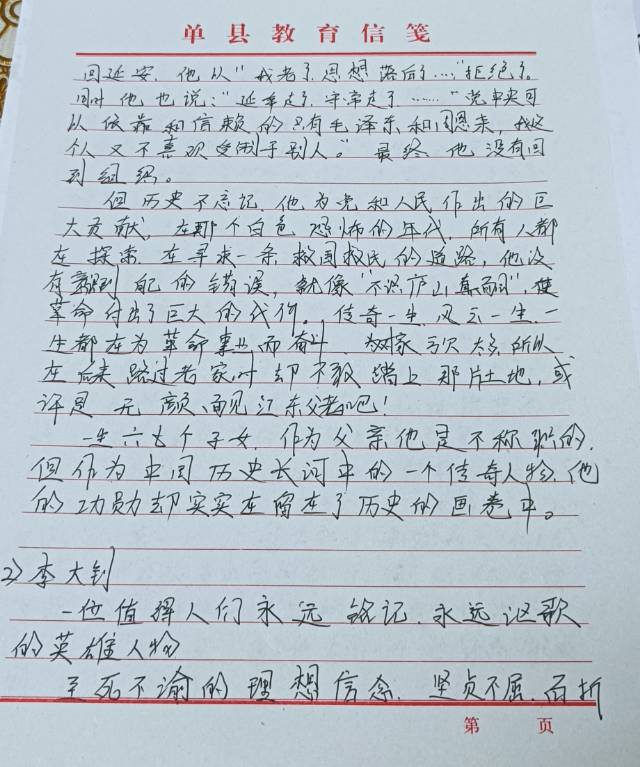 单县教育信笺
回延安，他以"我老了，思想落后了……"拒绝了。
同时他也说："延年走了，乔年走了……"党中央可
以依靠和信赖的只有毛泽东和周恩来，我这
个人又不喜欢受制于别人。"最终他没有回
到组织。
但历史不忘记，他为党和人民作出的巨
大贡献，在那个白色恐怖的年代，所有人都
在探索，在寻求一条救国救民的道路，他没
有意识到自己的错误，就像"不识庐山真面目"，使
革命付出了巨大的代价。传奇一生，风云一生，一
生都在为革命事业而奋斗 为对家亏欠太多，所以
在后来路过老家时却不敢踏上那片土地，或
许是无颜面见江东父老吧！
一生六七个子女，作为父亲他是不称职的，
但作为中国历史长河中的一个传奇人物，他
的功勋却实实在在留在了历史的画卷中。
2）李大钊
一位值得人们永远铭记，永远讴歌
的英雄人物
至死不渝的理想信念，坚贞不屈，百折
第 页